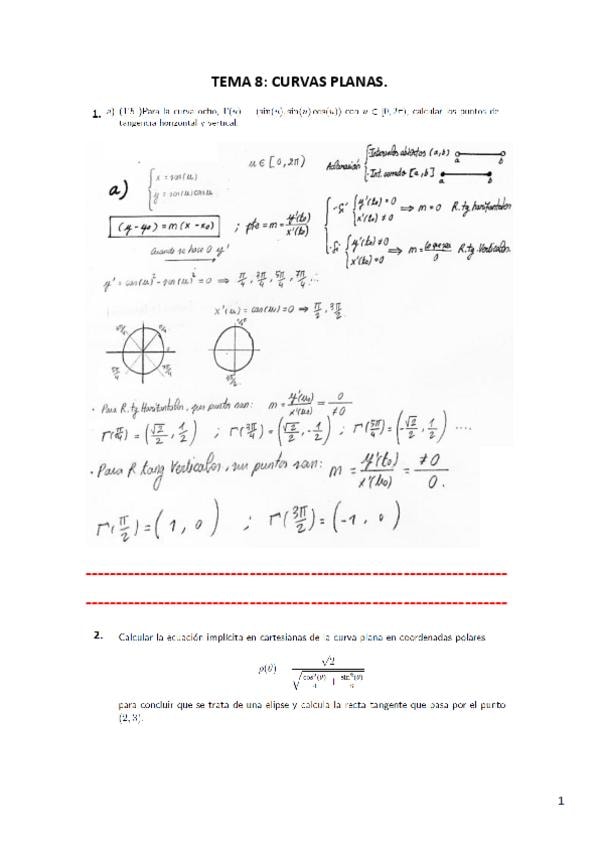 TEMA 8: CURVAS PLANAS.
1. a) Para la curva ocho, Γ(u) = (sin(u), sin(u)cos(u)) con u ∈ [0, 2π), calcular los puntos de
tangencia horizontal y vertical.
a) { x = sen(u)
y = sen(u)cos u
u ∈ [0, 2π)
Aclaración { Intervalos abiertos (a, b) a b
- Int. cerrado [a, b] a b
(y - y₀) = m (x - x₀) ; pte = m = y'(t₀)/x'(t₀)
- Si { y'(t₀) = 0
x'(t₀) ≠ 0 ⟹ m = 0 R. tg horizontales
- Si { y'(t₀) ≠ 0
x'(t₀) = 0 ⟹ m = /0 R. tg Verticales.
Cuando se hace 0 y'
y' = cos(u)² - sen(u)² = 0 ⟹ π/4, 3π/4, 5π/4, 7π/4
x'(u) = cos(u) = 0 ⟹ π/2, 3π/2.
· Para R. tg Horizontales, sus puntos son: m = y'(u₀)/x'(u₀) = 0/≠0
Γ(π/4) = (√2/2, 1/2) ; Γ(3π/4) = (√2/2, -1/2) ; Γ(5π/4) = (-√2/2, 1/2) ....
· Para R tang Verticales, sus puntos son: m = y'(t₀)/x'(t₀) = ≠0/0.
Γ(π/2) = (1, 0) ; Γ(3π/2) = (-1, 0)
2. Calcular la ecuación implícita en cartesianas de la curva plana en coordenadas polares
ρ(θ) = √2
para concluir que se trata de una elipse y calcula la recta tangente que pasa por el punto
(2, 3).
1